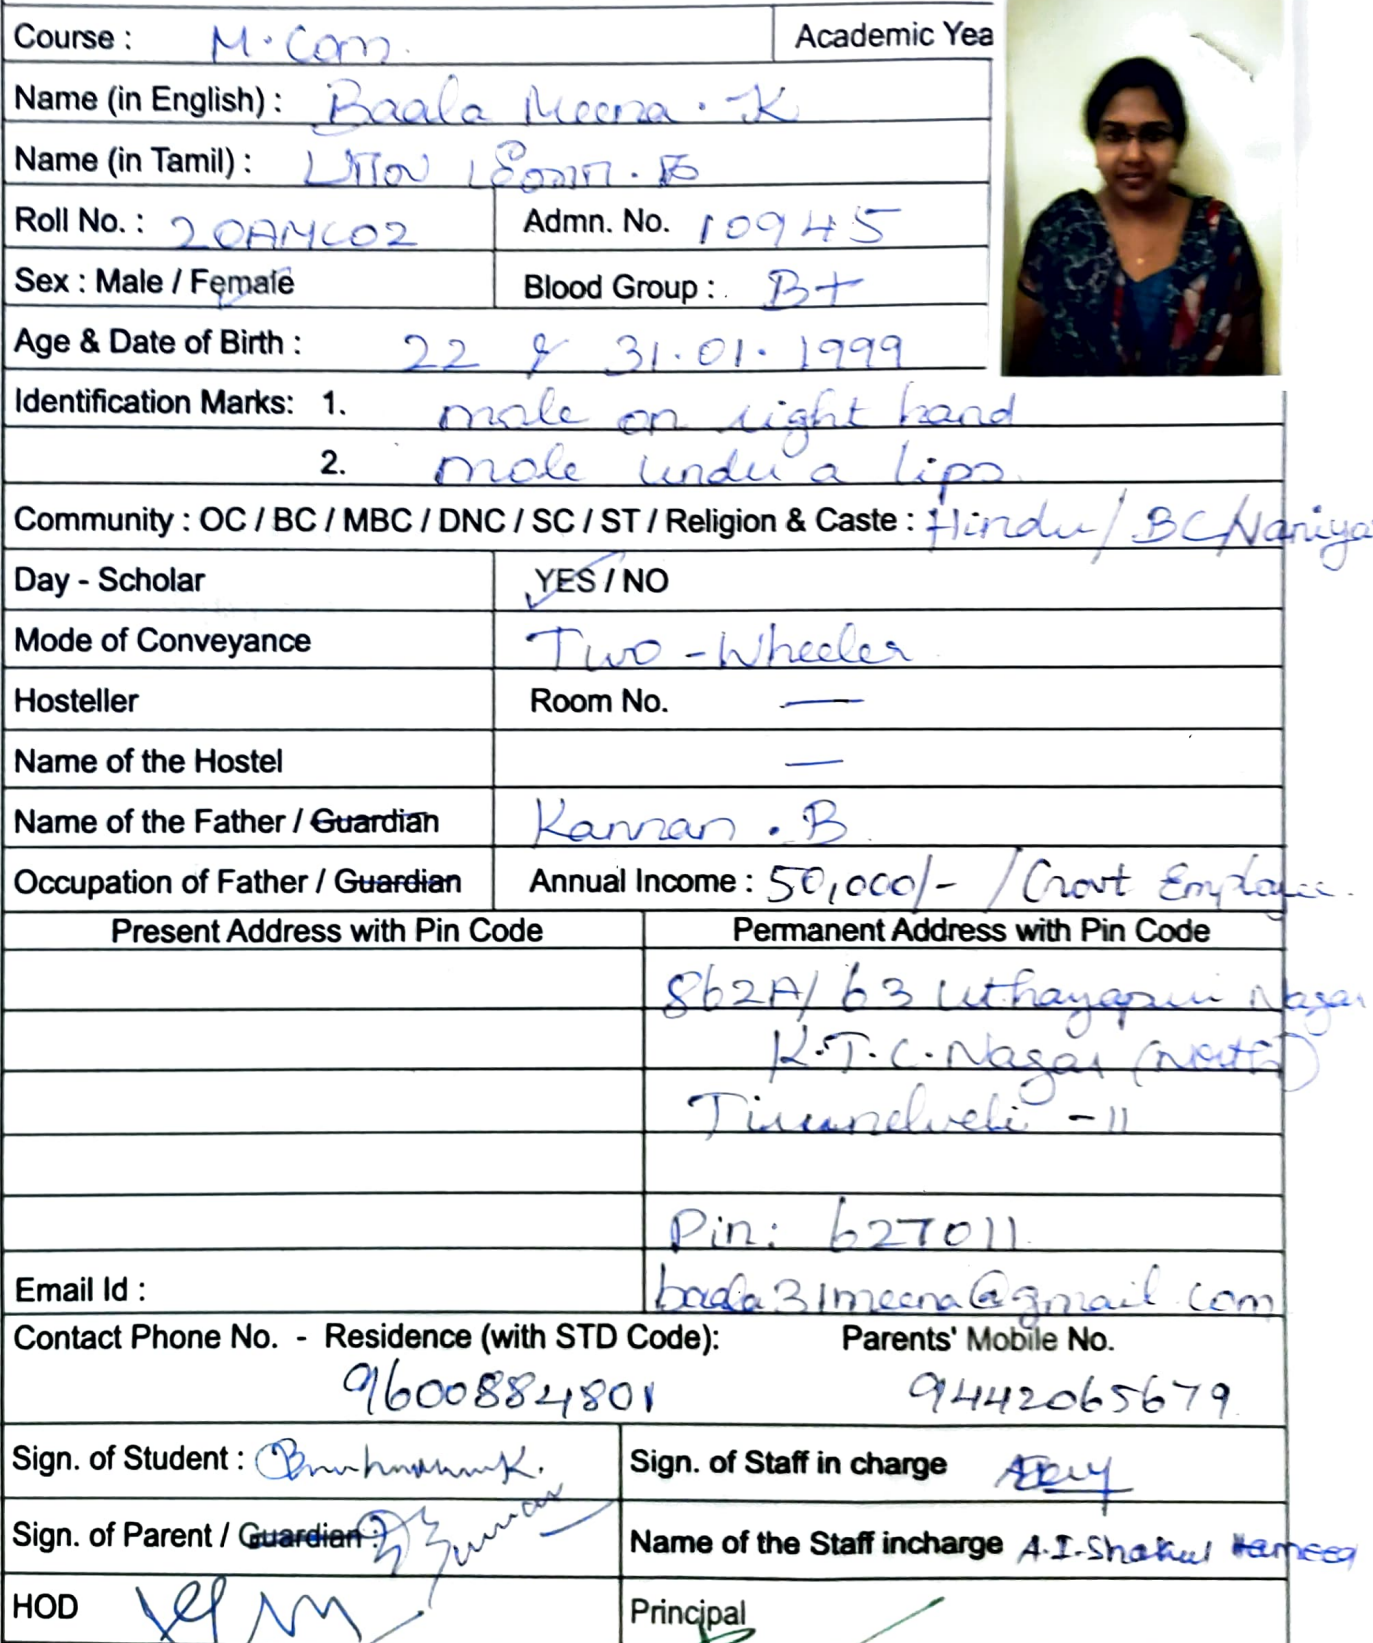 Course : M.Com. Academic Yea
Name (in English) : Baala Meena . K
Name (in Tamil) : பால மீனா . க
Roll No. : 20AMC02 Admn. No. 10945
Sex : Male / Female Blood Group : B+
Age & Date of Birth : 22 & 31.01.1999
Identification Marks: 1. mole on right hand
2. mole under a lips.
Community : OC / BC / MBC / DNC / SC / ST / Religion & Caste : Hindu / BC/Vaniya
Day - Scholar YES / NO
Mode of Conveyance Two - Wheeler
Hosteller Room No. —
Name of the Hostel —
Name of the Father / Guardian Kannan . B
Occupation of Father / Guardian Annual Income : 50,000/- / Govt Employee.
Present Address with Pin Code Permanent Address with Pin Code
862A/ 63 Uthayapuri Nagar
K.T.C. Nagar (North)
Tirunelveli - 11
Pin: 627011
Email Id : baala31meena@gmail.com
Contact Phone No. - Residence (with STD Code): Parents' Mobile No.
9600884801 9442065679
Sign. of Student : Sign. of Staff in charge
Sign. of Parent / Guardian : Name of the Staff incharge A.I.Shakul Hameed
HOD Principal